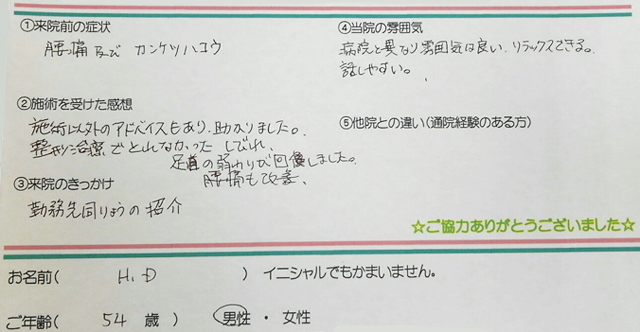 ①来院前の症状
腰痛及び カンケツハコウ
②施術を受けた感想
施術以外のアドバイスもあり、助かりました。
整形治療でとれなかった しびれ、
足首の弱わりが回復しました。
腰痛も改善、
③来院のきっかけ
勤務先同りょうの紹介
④当院の雰囲気
病院と異なり雰囲気は良い、リラックスできる。
話しやすい。
⑤他院との違い(通院経験のある方)
☆ご協力ありがとうございました☆
お名前( H.D ) イニシャルでもかまいません。
ご年齢( 54 歳 ) 男性 ・ 女性